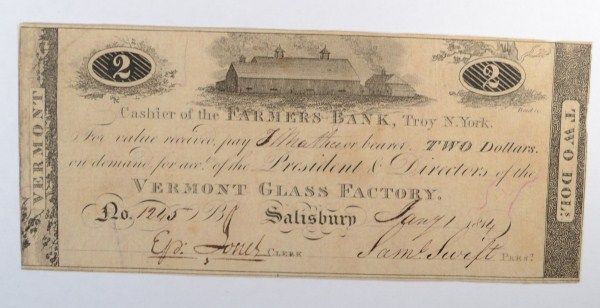 2 2
VERMONT
TWO DOLs.
Cashier of the FARMERS BANK, Troy N.York.
For value received, pay or bearer, TWO Dollars.
on demand, for acct. of the President & Directors of the
VERMONT GLASS FACTORY.
No. 1245 Salisbury Jany 1 1814
Epa. Jones CLERK Saml. Swift PRESt.